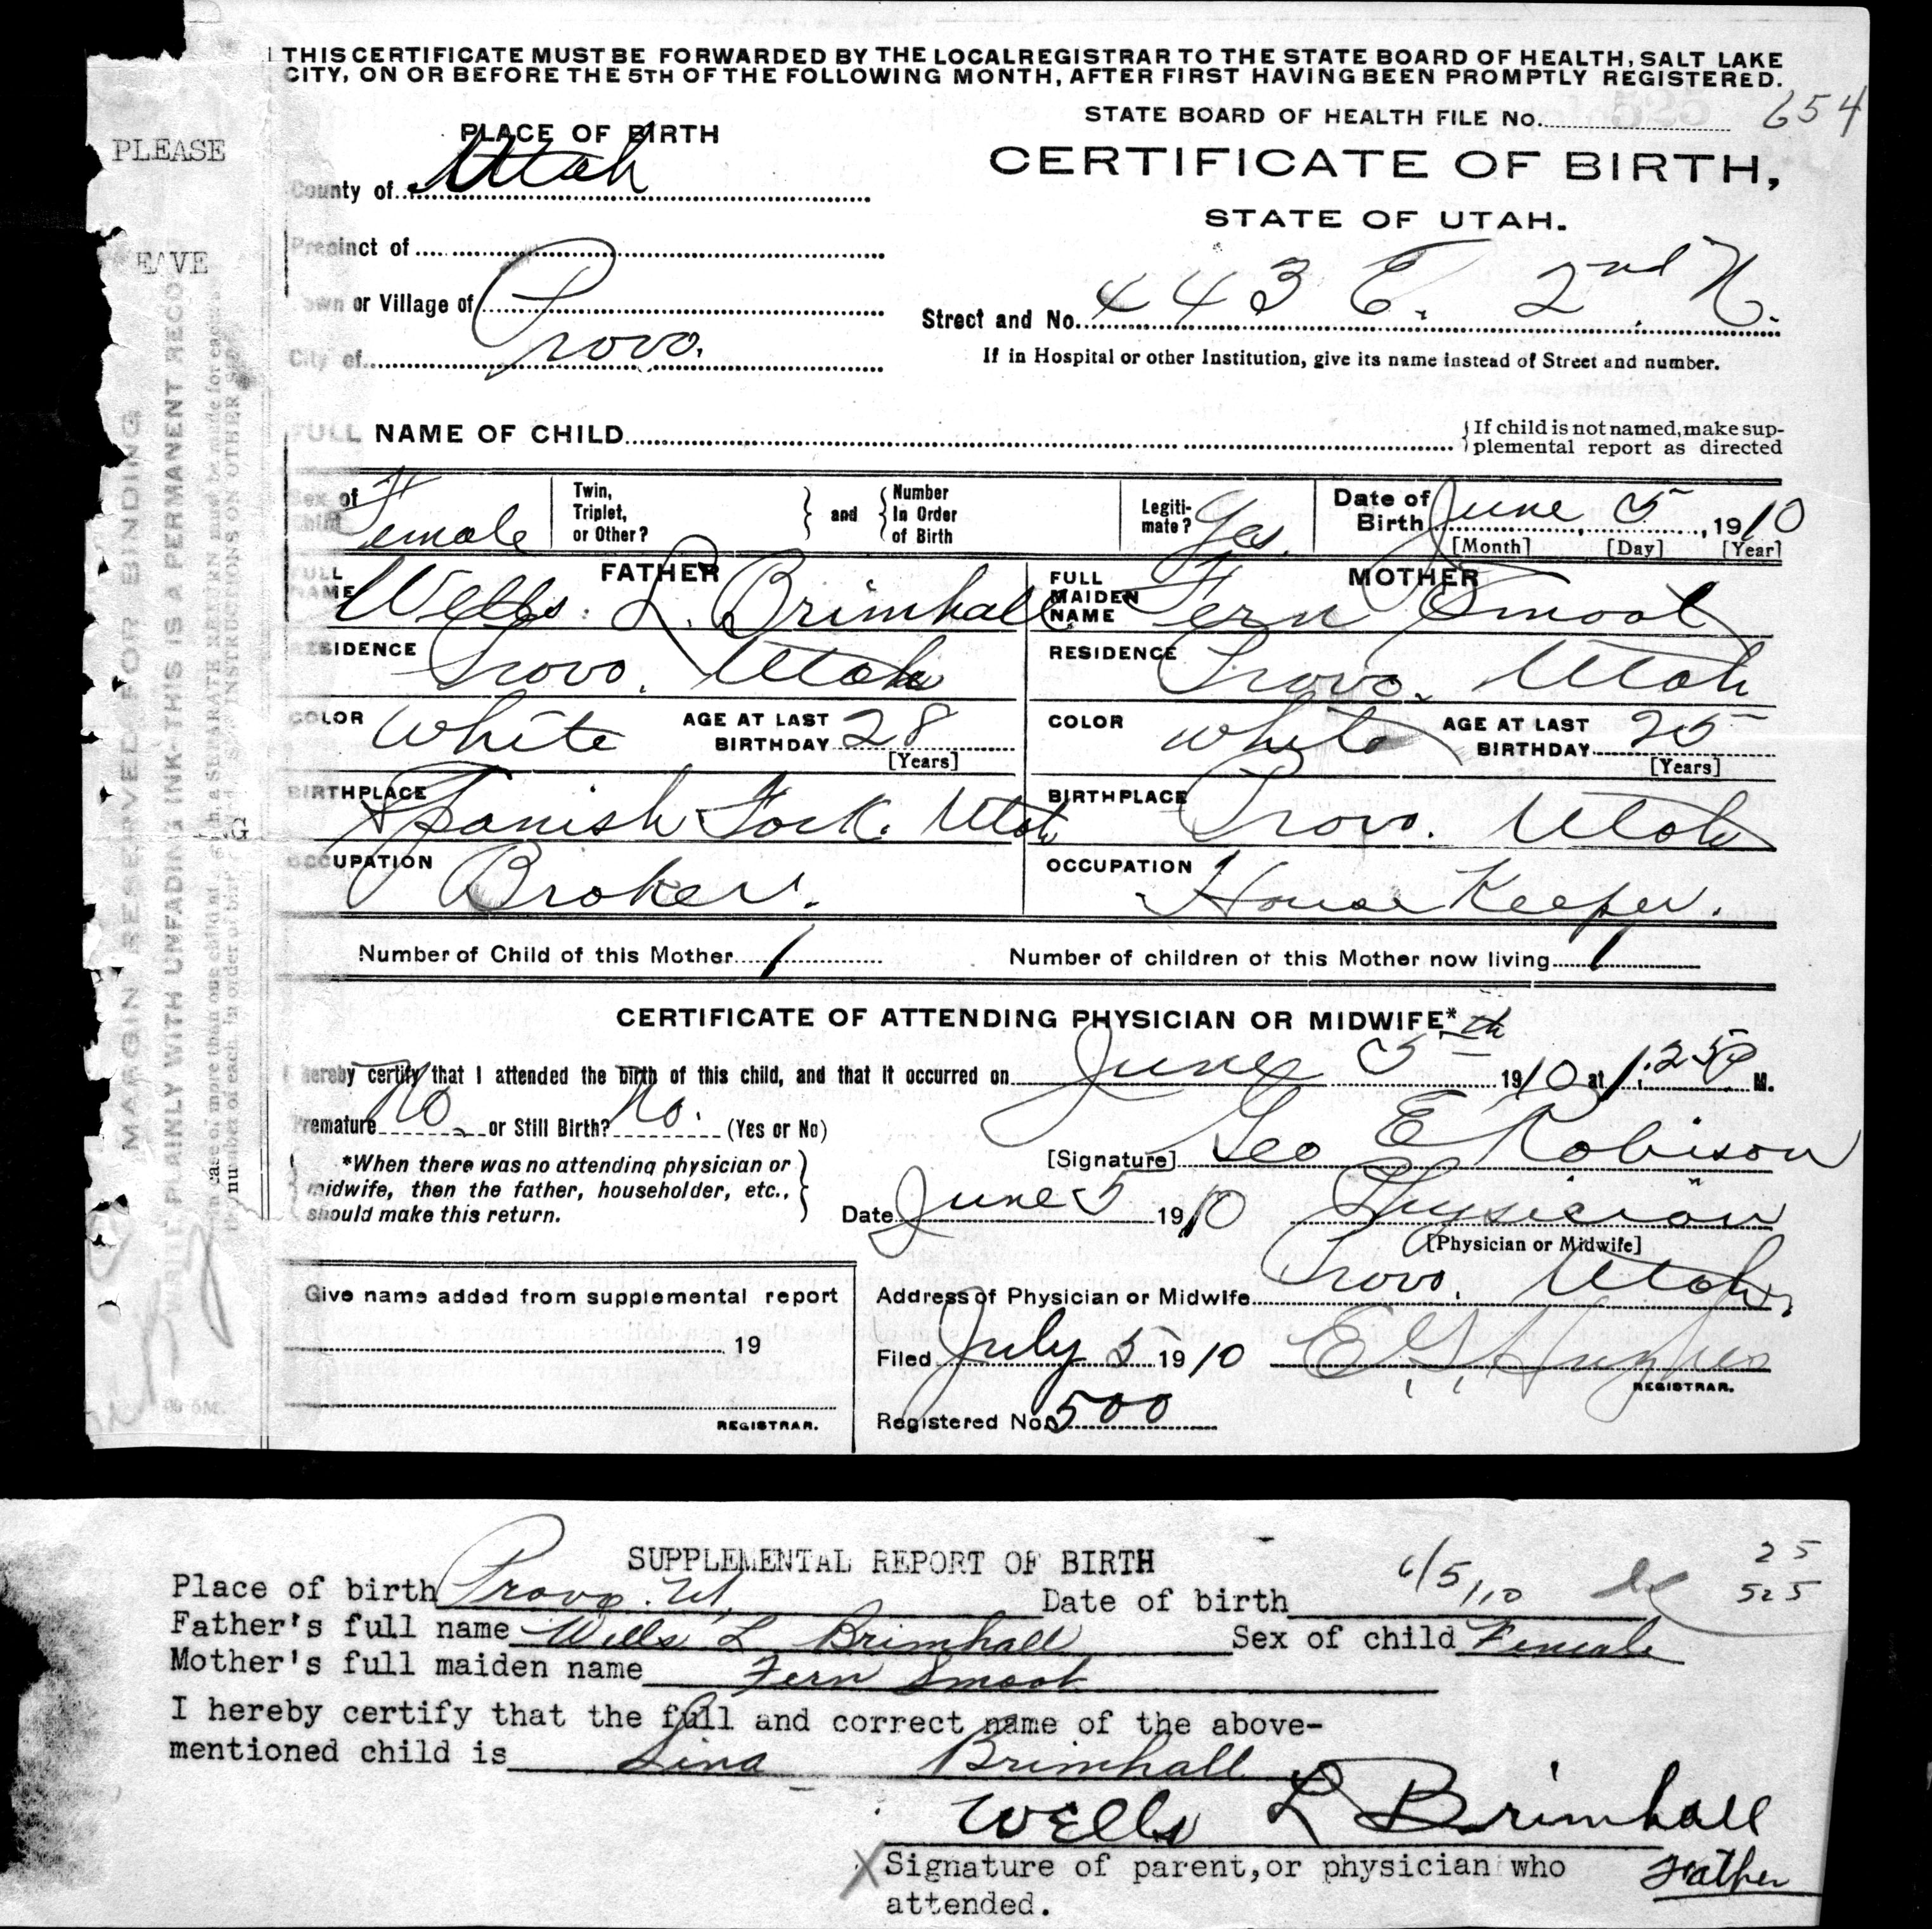 THIS CERTIFICATE MUST BE FORWARDED BY THE LOCAL REGISTRAR TO THE STATE BOARD OF HEALTH, SALT LAKE
CITY, ON OR BEFORE THE 5TH OF THE FOLLOWING MONTH, AFTER FIRST HAVING BEEN PROMPTLY REGISTERED.
STATE BOARD OF HEALTH FILE No. 654
PLACE OF BIRTH
CERTIFICATE OF BIRTH,
STATE OF UTAH.
County of Utah
Precinct of
Town or Village of
City of Provo.
Street and No. 443 E. 2nd N.
If in Hospital or other Institution, give its name instead of Street and number.
FULL NAME OF CHILD
{If child is not named, make sup-
plemental report as directed
Sex of Child Female
Twin, Triplet, or Other?
and
Number In Order of Birth
Legiti-mate? Yes.
Date of Birth June 5, 1910
[Month] [Day] [Year]
FATHER
FULL NAME Wells L. Brimhall
RESIDENCE Provo. Utah
COLOR White AGE AT LAST BIRTHDAY 28
[Years]
BIRTHPLACE Spanish Fork. Utah
OCCUPATION Broker.
MOTHER
FULL MAIDEN NAME Fern Smoot
RESIDENCE Provo. Utah
COLOR white AGE AT LAST BIRTHDAY 25
[Years]
BIRTHPLACE Provo. Utah
OCCUPATION House Keeper.
Number of Child of this Mother 1 Number of children of this Mother now living 1
CERTIFICATE OF ATTENDING PHYSICIAN OR MIDWIFE*
I hereby certify that I attended the birth of this child, and that it occurred on June 5th 1910 at 1:25 P M.
Premature No. or Still Birth? No. (Yes or No)
*When there was no attending physician or
midwife, then the father, householder, etc.,
should make this return.
[Signature] Geo E Robison
Date June 5 1910 Physician
[Physician or Midwife]
Give name added from supplemental report
19
REGISTRAR.
Address of Physician or Midwife Provo. Utah.
Filed July 5 1910 E. G. Hughes
REGISTRAR.
Registered No. 500
PLEASE
LEAVE
MARGIN RESERVED FOR BINDING
WRITE PLAINLY WITH UNFADING INK-THIS IS A PERMANENT RECO
In case of more than one child at a birth, a SEPARATE RETURN must be made for each
the number of each, in order of birth
SEE INSTRUCTIONS ON OTHER SIDE
SUPPLEMENTAL REPORT OF BIRTH
25
525
Place of birth Provo. Ut. Date of birth 6/5/10
Father's full name Wells L Brimhall Sex of child Female
Mother's full maiden name Fern Smoot
I hereby certify that the full and correct name of the above-
mentioned child is Lina Brimhall
Wells L Brimhall
X Signature of parent, or physician who Father
attended.